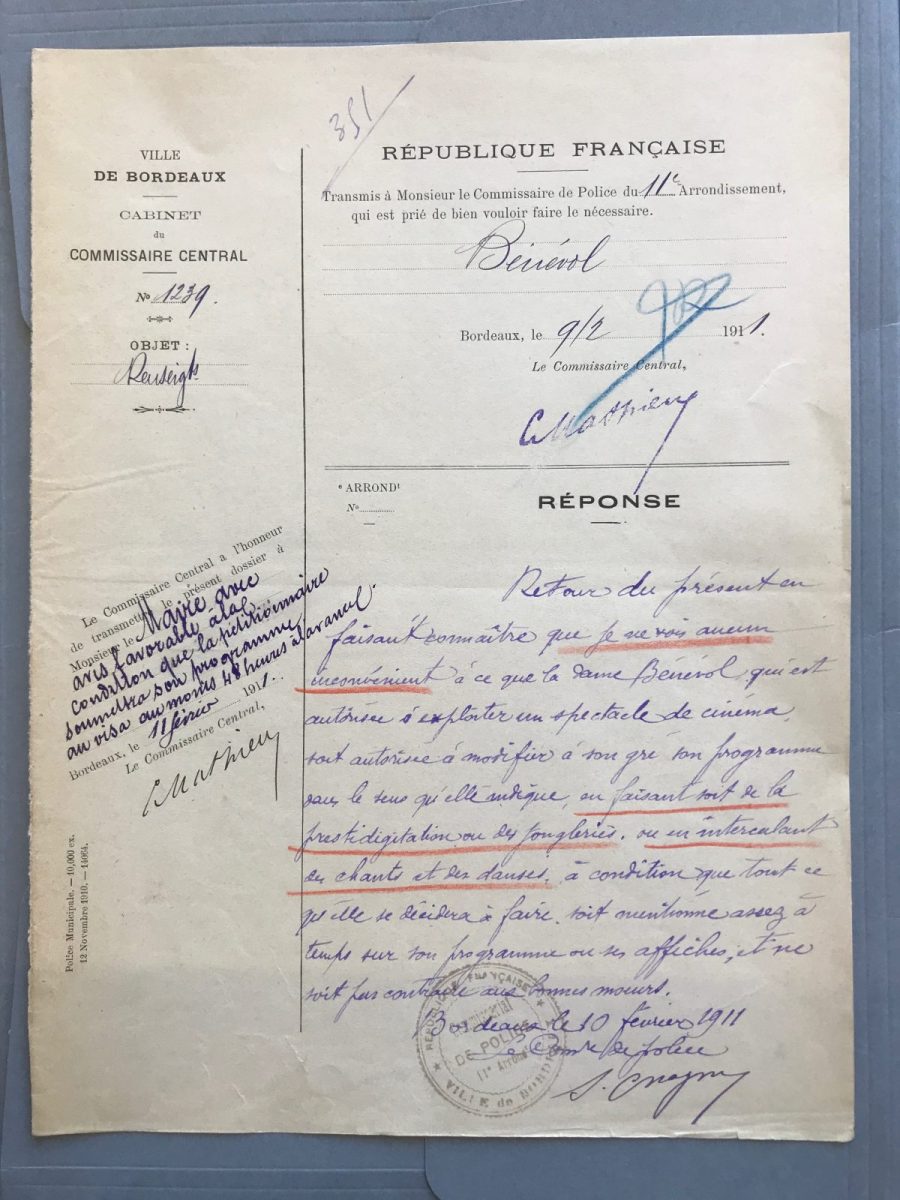 351
VILLE
DE BORDEAUX
CABINET
du
COMMISSAIRE CENTRAL
No 1239.
OBJET :
Renseigts
RÉPUBLIQUE FRANÇAISE
Transmis à Monsieur le Commissaire de Police du 11e Arrondissement,
qui est prié de bien vouloir faire le nécessaire.
Bénévol
Bordeaux, le 9/2 1911.
Le Commissaire Central,
C Mathieu
e ARRONDt
No
RÉPONSE
Le Commissaire Central a l'honneur
de transmettre le présent dossier à
Monsieur le Maire avec
avis favorable à la
condition que la pétitionnaire
soumettra son programme
au visa au moins 48 heures à l'avance.
Bordeaux, le 11 février 1911.
Le Commissaire Central,
C Mathieu
Police Municipale. — 10,000 ex.
12 Novembre 1910. — 14064.
Retour du présent en
faisant connaître que je ne vois aucun
inconvénient à ce que la dame Bénévol, qui est
autorisée à exploiter un spectacle de cinéma,
soit autorisée à modifier à son gré son programme
dans le sens qu'elle indique, en faisant soit de la
prestidigitation ou des jongleries, ou en intercalant
des chants et des danses, à condition que tout ce
qu'elle se décidera à faire, soit mentionné assez à
temps sur son programme ou ses affiches, et ne
soit pas contraire aux bonnes moeurs.
Bordeaux le 10 février 1911
Le Comre de police
RÉPUBLIQUE FRANÇAISE
DE POLICE
11e Arrondt
VILLE de BORDEAUX